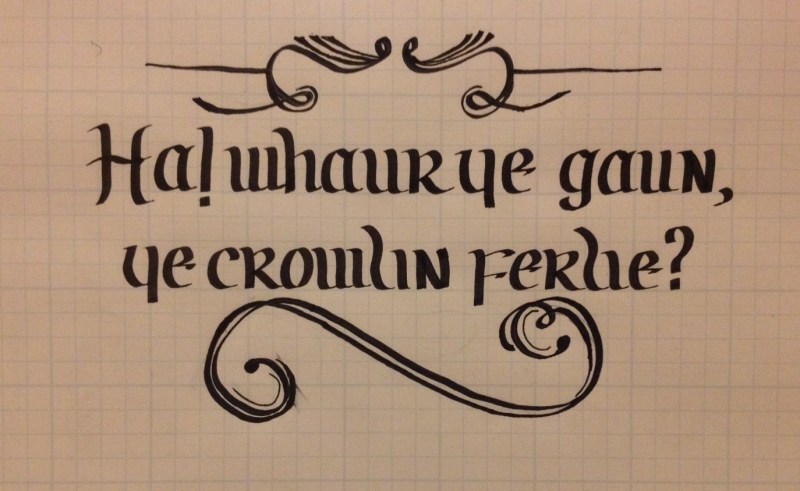 Ha! whaur ye gaun,
ye crowlin ferlie?